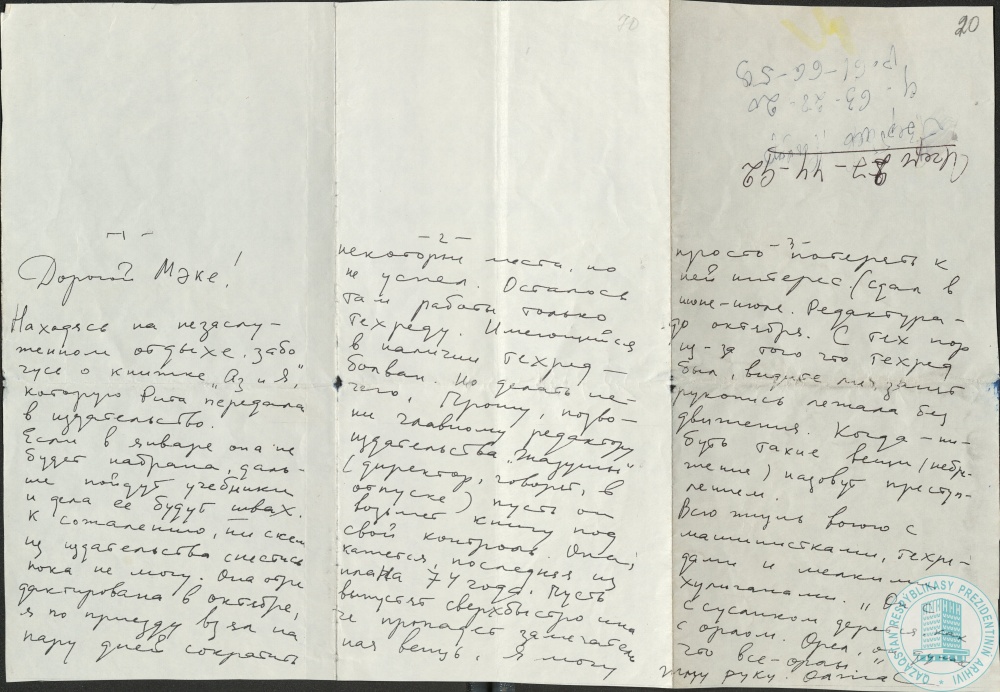 20
70
р. 61-66-59
ч. 63-22-20
27-44-92
-1-
Дорогой Мэке!
Находясь на незаслу-
женном отдыхе, забо
чусь о книжке „Аз и Я",
которую Рита передала
в издательство.
Если в январе она не
будет набрана, даль-
ше пойдут учебники
и дела её будут швах.
К сожалению, ни с кем
из издательства снестись
пока не могу. Она отре
дактирована в октябре,
я по приезду взял на
пару дней сократить
-2-
некоторые места, но
не успел. Осталось
там работы только
техреду. Имеющийся
в наличии техред –
болван. Но делать не-
чего. Прошу, позво-
ни главному редактору
издательства „Жазушы"
(директор, говорят, в
отпуске) пусть он
возьмет книгу под
свой контроль. Она,
кажется, последняя из
плана 74 года. Пусть
выпустят сверхбыстро ина
че пропадет замечатель
ная вещь. Я могу
-3-
просто потерять к
ней интерес. (Сдал в
июне-июле. Редактура –
до октября. С тех пор
из-за того что техред
был, видите ли, занят
рукопись лежала без
движения. Когда-ни-
будь такие вещи (небре-
жение) назовут преступ-
лением.
Всю жизнь воюю с
машинистками, техре-
дами и мелкими
хулиганами. „
с сусликом дерется как
с орлом. Орел,
что все – орлы."
жму руку. Олжас
QAZAQSTAN RESPÝBLIKASY PREZIDENTINIŃ ARHIVI